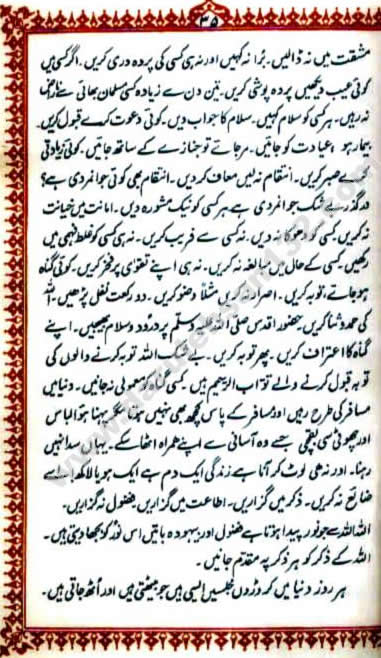 ۳۵
مشقت میں نہ ڈالیں۔ بُرا نہ کہیں اور نہ ہی کسی کی پردہ دری کریں۔ اگر کسی میں
کوئی عیب دیکھیں پردہ پوشی کریں۔ تین دن سے زیادہ کسی مسلمان بھائی سے ناراض
نہ رہیں۔ ہر کسی کو سلام کہیں۔ سلام کا جواب دیں۔ کوئی دعوت کرے قبول کریں۔
بیمار ہو عیادت کو جائیں۔ مرجائے تو جنازے کے ساتھ جائیں۔ کوئی زیادتی
کرے صبر کریں۔ انتقام نہ لیں معاف کر دیں۔ انتقام بھی کوئی جوانمردی ہے؟
درگذر بے شک جوانمردی ہے ہر کسی کو نیک مشورہ دیں۔ امانت میں خیانت
نہ کریں کسی کو دھوکا نہ دیں۔ نہ کسی سے فریب کریں۔ نہ ہی کسی کو غلط فہمی میں
رکھیں۔ کسی کے حال میں مبالغہ نہ کریں۔ نہ ہی اپنے تقوٰی پر فخر کریں۔ کوئی گناہ
ہو جائے، توبہ کریں۔ اصرار نہ کریں مثلاً وضو کریں۔ دو رکعت نفل پڑھیں۔ اللہ
کی حمد و ثنا کریں۔ حضور اقدس صلی اللہ علیہ وسلم پر درُود و سلام بھیجیں۔ اپنے
گناہ کا اعتراف کریں۔ پھر توبہ کریں۔ بے شک اللہ توبہ کرنے والوں کی
توبہ قبول کرنے والے توّاب الرّحیم ہیں۔ کسی گناہ کو معمولی نہ جانیں۔ دنیا میں
مسافر کی طرح رہیں اور مسافر کے پاس کچھ بھی نہیں ہوتا مگر پہنا ہوا لباس
اور چھوٹی سی بغچی جسے وہ آسانی سے اپنے ہمراہ اٹھا سکے۔ یہاں سدا نہیں
رہنا۔ اور نہ ہی لوٹ کر آنا ہے زندگی ایک دم ہے ایک ہو یا لاکھ اِسے
ضائع نہ کریں۔ ذکر میں گزاریں۔ اطاعت میں گزاریں فضول نہ گزاریں۔
اللہ اللہ سے جو نور پیدا ہوتا ہے فضول اور بیہودہ باتیں اس نُور کو بجھا دیتی ہیں۔
اللہ کے ذکر کو ہر ذکر پہ مقدّم جانیں۔
ہر روز دنیا میں کروڑوں مجلسیں ایسی ہیں جو بیٹھتی ہیں اور اُٹھ جاتی ہیں۔